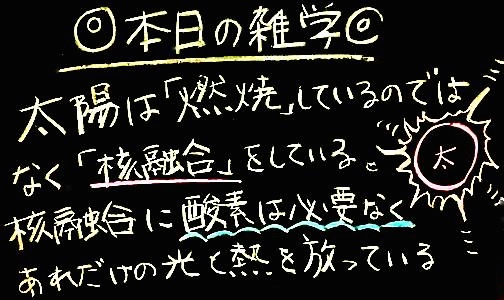 ◎本日の雑学◎
太陽は「燃焼」しているのでは
なく「核融合」をしている。
太
核融合に酸素は必要なく
あれだけの光と熱を放っている